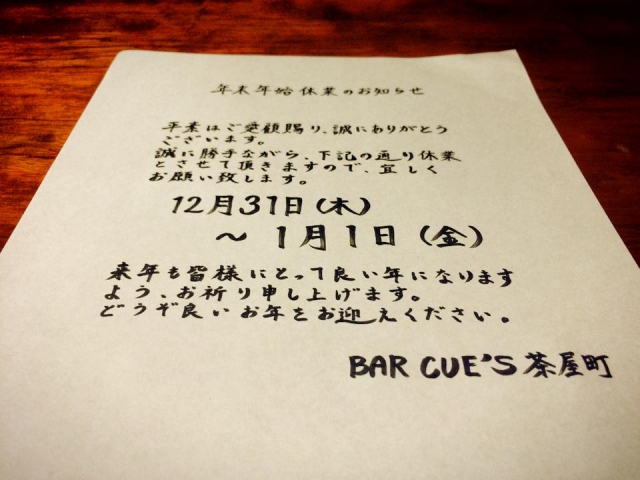 年末年始休業のお知らせ
平素はご愛顧賜り、誠にありがとう
ございます。
誠に勝手ながら、下記の通り休業
とさせて頂きますので、宜しく
お願い致します。
12月31日(木)
～ 1月1日(金)
来年も皆様にとって良い年になります
よう、お祈り申し上げます。
どうぞ良いお年をお迎えください。
BAR CUE'S 茶屋町